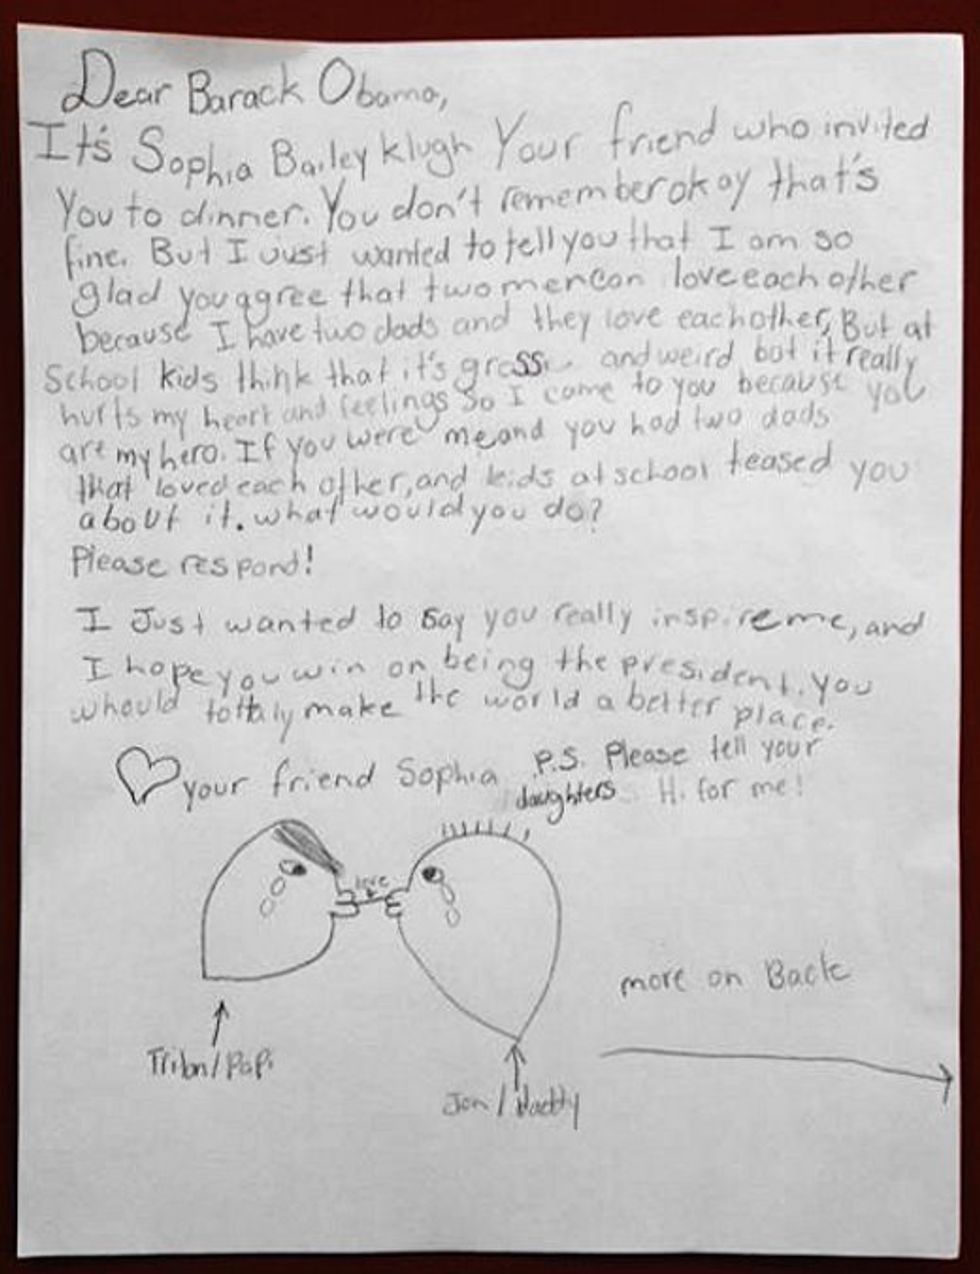 Dear Barack Obama,
It's Sophia Bailey klugh Your friend who invited
You to dinner. You don't remember okay that's
fine. But I Just wanted to tell you that I am so
glad you agree that two men can love each other
because I have two dads and they love each other, But at
School kids think that it's gross and weird but it really
hurts my heart and feelings So I come to you because you
are my hero. If you were me and you had two dads
that loved each other, and kids at school teased you
about it. what would you do?
Please respond!
I Just wanted to say you really inspire me, and
I hope you win on being the president. you
whould tottaly make the world a better place.
your friend Sophia
P.S. Please tell your
daughters Hi for me!
love
more on Back
/ Papi
Jon / Daddy